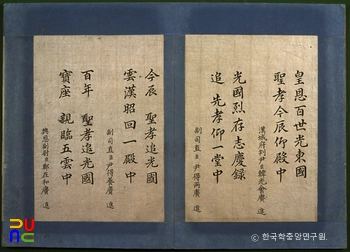 皇恩百世光東國
聖孝今辰仰殿中
漢城府判尹臣韓光會賡 進
光國烈存志慶録
追 先孝仰一堂中
副司直臣尹得雨賡 進
今辰 聖孝追光國
雲漢昭回一殿中
副司直臣尹得養賡 進
百年 聖孝追光國
寶座 親臨五雲中
興恩副尉臣鄭在和賡 進
한국학중앙연구원